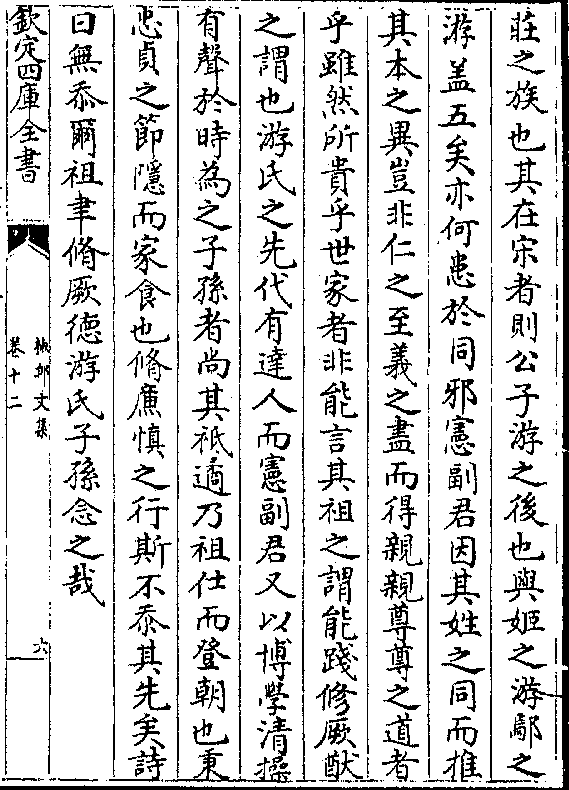 莊之族也其在宋者則公子游之後也與姬之游鄢之
游盖五矣亦何患於同邪憲副君因其姓之同而推
其本之異豈非仁之至義之盡而得親親尊尊之道者
乎雖然所貴乎世家者非能言其祖之謂能踐修厥猷
之謂也游氏之先代有達人而憲副君又以博學清操
有聲於時為之子孫者尚其祗遹乃祖仕而登朝也秉
忠貞之節隱而家食也脩廉慎之行斯不忝其先矣詩
曰無忝爾祖聿脩厥德游氏子孫念之哉
欽定四庫全書
文集
卷十二
六